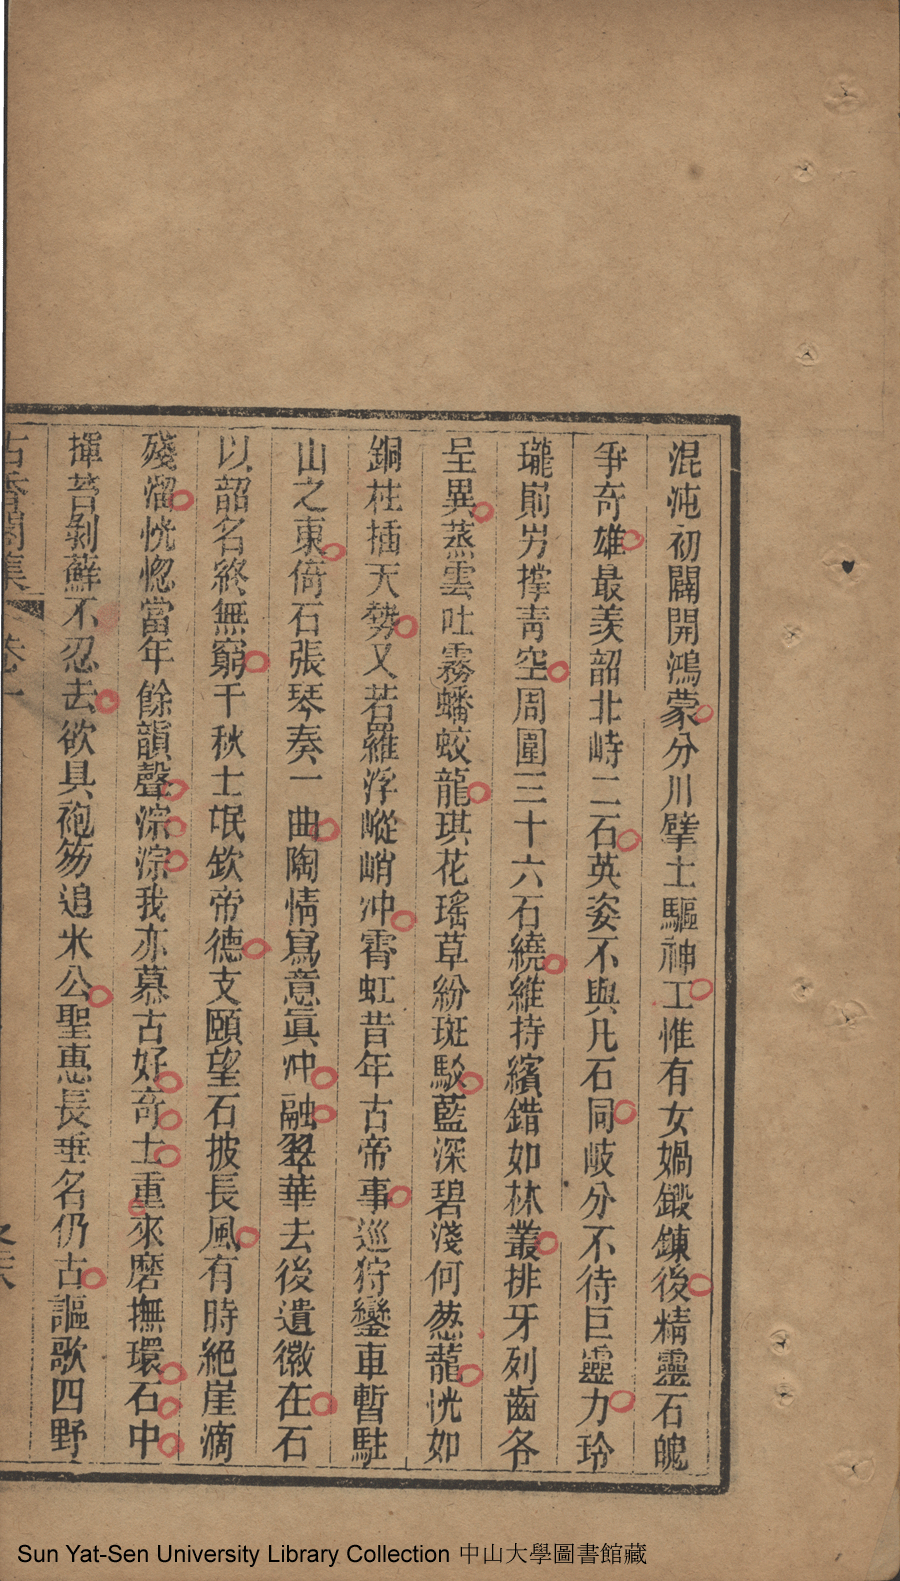 混沌初闢開鴻蒙分川擘土驅神工惟有女媧鍛鍊後精靈石魄
爭奇雄最羨韶北峙二石英姿不與凡石同岐分不待巨靈力玲
瓏剪屴撑青空周圍三十六石繞維持繽錯如林叢排牙列齒各
呈異蒸雲吐霧蟠蛟龍琪花瑤草紛斑駁藍深碧淺何葱蘢恍如
銅柱插天勢又若羅浮嵷峭冲霄虹昔年古帝事巡狩鑾車暫駐
山之東倚石張琴奏一曲陶情寫意眞冲融翠華去後遺徽在石
以韶名終無窮千秋士氓欽帝德支頤望石披長風有時絕崖滴
殘溜恍惚當年餘韻聲淙淙我亦慕古好奇士重來磨撫環石中
揮苔剝蘚不忍去欲具袍笏追米公聖惠長垂名仍古謳歌四野
古香閣集
卷一
Sun Yat-Sen University Library Collection 中山大學圖書館藏